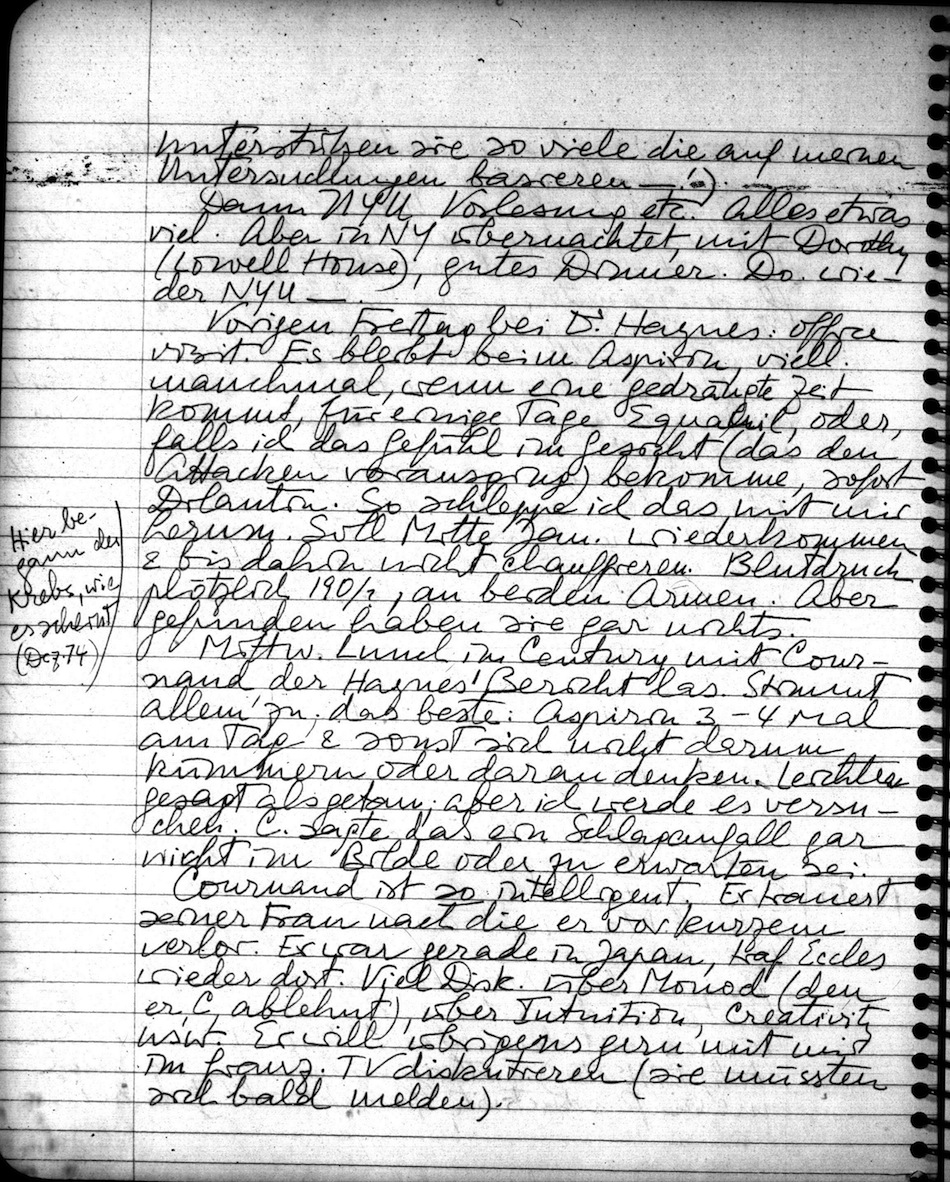 unterstützen sie so viele die auf meinen
Untersuchungen basieren —!).
Dann NYU, Vorlesung etc. Alles etwas
viel. Aber in NY übernachtet, mit Dorothy
(Lowell House), gutes Dinner. Do. wie-
der NYU —.
Vorigen Freitag bei Dr. Haynes: office
visit. Es bleibt beim Aspirin, viell.
manchmal, wenn eine gedrängte Zeit
kommt, für einige Tage Equanil, oder,
falls ich das Gefühl im Gesicht (das den
Attacken vorausging) bekomme, sofort
Dilantin. So schleppe ich das mit mir
herum. Soll Mitte Jan. wiederkommen
& bis dahin nicht chauffieren. Blutdruck
plötzlich 190/?, an beiden Armen. Aber
gefunden haben sie gar nichts.
Hier be-
gann der
Krebs, wie
es scheint
(Dez. 74)
Mittw. Lunch im Century mit Cour-
nand der Haynes' Bericht las. Stimmt
allem zu; das beste: Aspirin 3-4 mal
am Tag & sonst sich nicht darum
kümmern oder daran denken. Leichter
gesagt als getan; aber ich werde es versu-
chen. C. sagte das ein Schlaganfall gar
nicht im Bilde oder zu erwarten sei.
Cournand ist so intelligent. Er trauert
seiner Frau nach die er vor kurzem
verlor. Er war gerade in Japan, traf Eccles
wieder dort. Viel Disk. über Monod (den
er, C, ablehnt), über Intuition, Creativity
usw. Er will übrigens gern mit mir
im franz. TV diskutieren (sie müssten
sich bald melden).